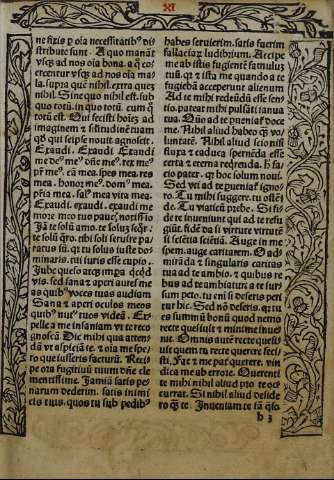 XI
ne fixis ꝑ oīa necessitatib⁹ di
stribute sunt. A quo manāt
vsqꝫ ad nos oīa bona. a q̄ co
ercentur vsqꝫ ad nos oīa ma
la. supra quē nihil. extra quē
nihil. Sine quo nihil est. sub
quo totū. in quo totū. cum q̄
totū est. Qui fecisti hoīez ad
imaginem & sīlitudinē tuam
qđ qui seipse nouit agnoscit.
Exaudi. Exaudi. Exaudi
me de⁹ me⁹ dñe me⁹. rex me⁹
pr̄ me⁹. cā mea. spes mea. res
mea. honor me⁹. dom⁹ mea.
pr̄ia mea. sal⁹ mea. vita mea.
Exaudi. exaudi. exaudi me
more illo tuo pauc̄ notissīo
Iā te solū amo. te solū seqr̄.
te solū q̄ro. tibi soli seruire pa
ratus sū. qꝛ tu solus iuste do
minaris. tui iuris esse cupio.
Iube queso atqꝫ impa q̄cqđ
vis. sed sana & aperi aures me
as quib⁹ voces tuas audiam
Sana & aperi oculos meos
quib⁹ nut⁹ tuos videā. Ex
pelle a me insaniam vt te reco
gnoscā Dic mihi qua atten
dā vt aspiciā te. & oīa me spe
ro que iusseris facturū. Reci
pe oro fugitiuū tuum dñe cle
mentissime. Iamiā satis pe
narum dederim. satis inimi
cis tuis. quos tu sub pedib⁹
habes seruierim. satis fuerim
fallaciaꝝ ludibrium. Accipe
me ab istis fugientē famulū
tuū. qꝛ & ista me quando a te
fugiebā acceperunt alienum
Ad te mihi redeūdū esse sen
tio. pateat mihi pulsāti ianua
tua. Quō ad te pueniaꝫ doce
me. Nihil aliud habeo qꝫ vo
luntatē. Nihil aliud scio nisi
fluxa & caduca spernēda esse
certa & eterna reqrenda. h fa
cio pater. qꝛ hoc solum noui.
Sed vn̄ ad te pueniaꝫ igno
ro. Tu mihi suggere. tu oste
de. Tu viaticū prebe. Si fi
de te inueniunt qui ad te refu
giūt. fidē da si virtute virtutē
si scīētia scīētiā. Auge in me
spem. auge caritatem. O ad
mirāda & singularis caritas
tua ad te ambio. & quibus re
bus ad te ambiatur a te rur
sum peto. tu eni si deseris peri
tur hic. Sed nō deseris. qꝛ tu
es summū bonū quod nemo
recte quesiuit & minime inue
nit. Omnis autē recte quesi
uit quem tu recte querere feci
sti. Fac & me pat̄ querere. vin
dica me ab errore. Querenti
te mihi nihil aliud p te oc
currat. Si nihil aliud deside
ro qꝫ te. Inueniam te iā qso.
b 3